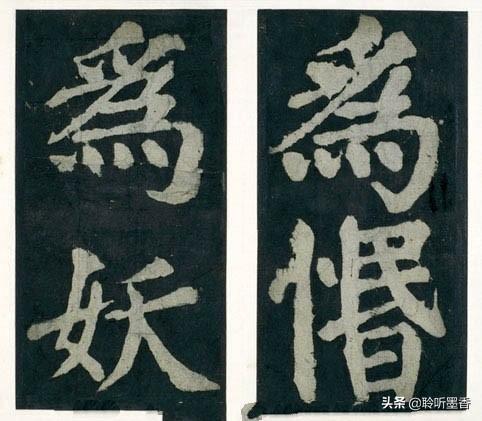 為惽
爲妖
头条 @聆听墨香